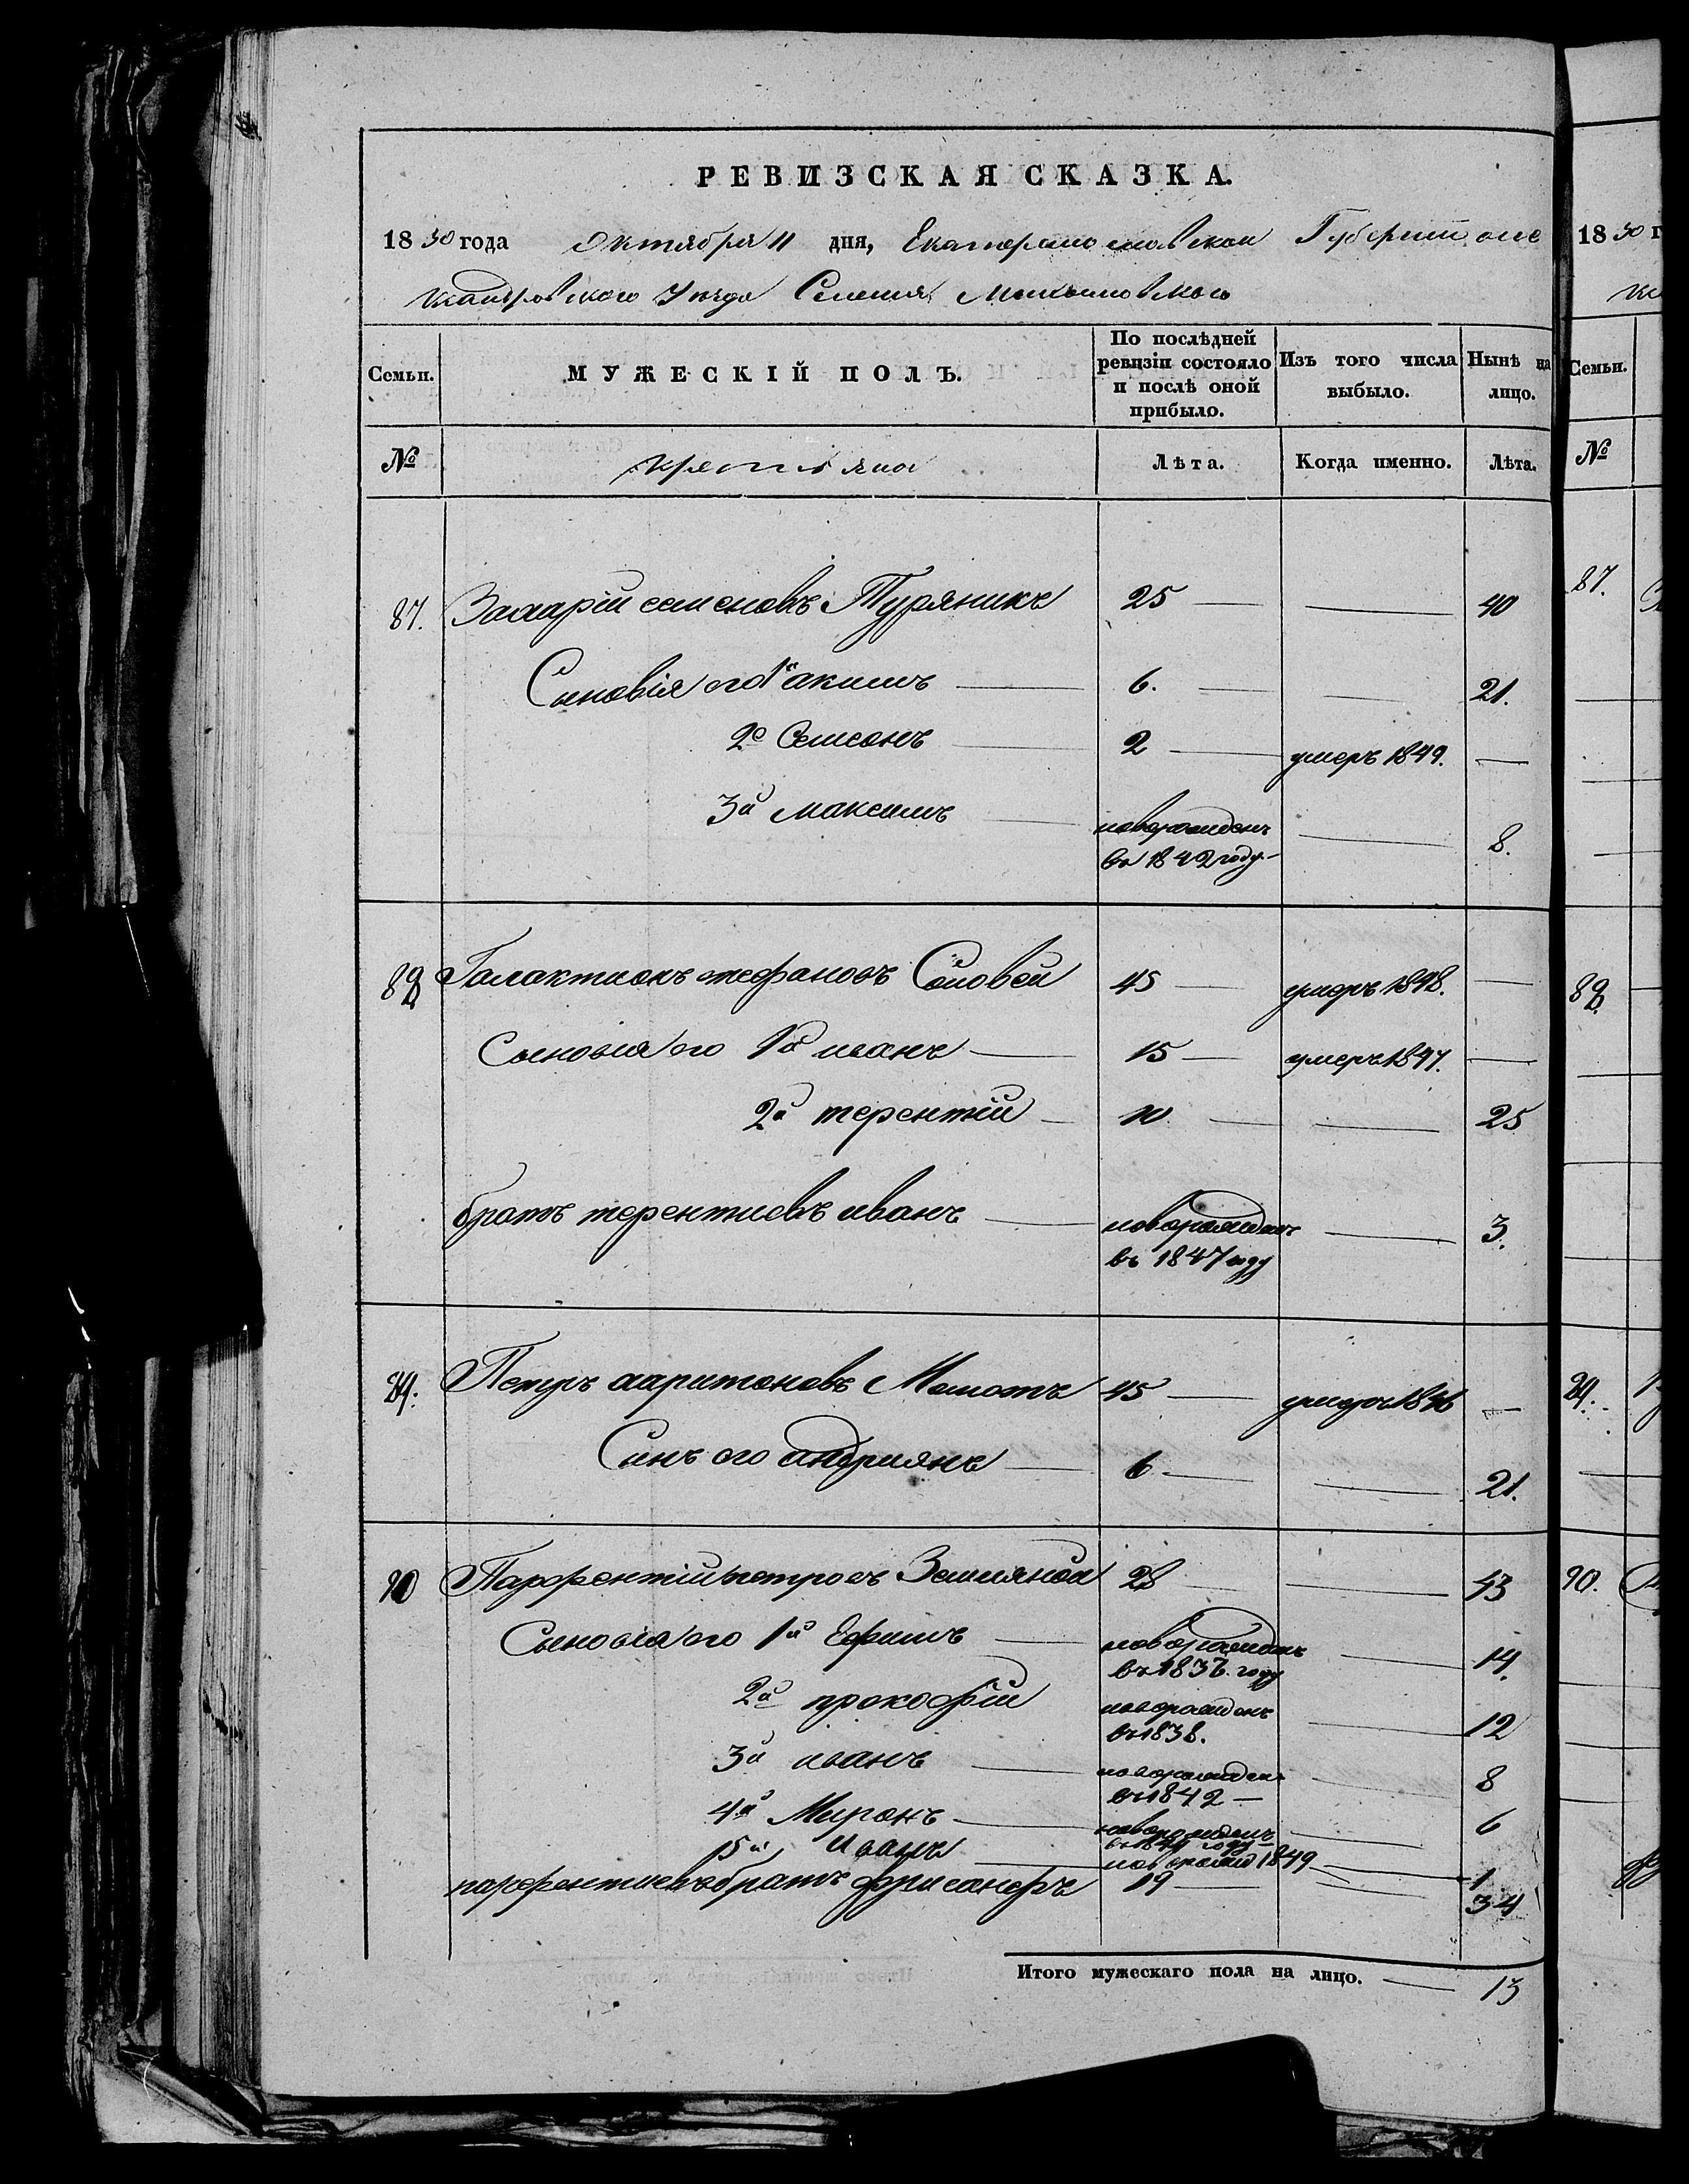 РЕВИЗСКАЯ СКАЗКА.
1850 года октября 11 дня, Екатеринославской Губернии, алек
сандровского Уезда Селения
Семьи. МУЖЕСКІЙ ПОЛЪ. По послѣдней ревизіи состояло и послѣ оной прибыло. Изъ того числа выбыло. Нынѣ на лицо.
№ крестьяна Лѣта. Когда именно. Лѣта.
87. Захарій семеновъ Туряникъ 25 — — 40
Сыновія его 1й акимъ — 6. — — 21.
2й Самсонъ — 2 — умеръ 1849. —
3й максимъ — новорожденъ — 8.
въ 1842 году —
88 Галактионъ стефановъ Соловей 45 — умеръ 1848. —
Сыновия его 1й иванъ — 15 — умеръ 1847. —
2й терентій — 10 — — 25
братъ терентиевъ иванъ — новорожденъ — 3.
въ 1847 году
89. Петръ харитоновъ Момотъ 45 — умеръ 1846 —
Синъ его андриянъ — 6 — — 21.
90 Парфентій петровъ Земляной 28 — — 43
Сыновия его 1й Ефимъ — новорожденъ — 14.
въ 1836. году
2й прокофій новорожденъ — 12
въ 1838.
3й иванъ — новорожденъ — 8
въ 1842 —
4й Миронъ — новорожденъ — 6
въ 1844 году —
5й Иванъ — новорожд 1849 — 1
парфентиевъ братъ 19 — — 34
Итого мужескаго пола на лицо. — 13
1850 г
Семьи.
№
87.
88.
89.
90.